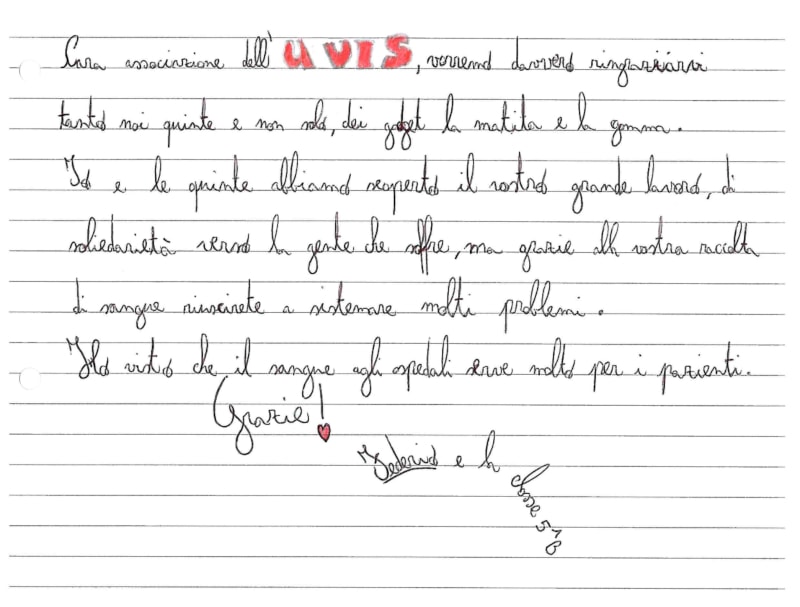 Cara associazione dell'AVIS, vorremo davvero ringraziarvi
tanto noi quinte e non solo, dei gadget la matita e la gomma.
Io e le quinte abbiamo scoperto il vostro grande lavoro, di
soliedarietà verso la gente che soffre, ma grazie alla vostra raccolta
di sangue riuscirete a sistemare molti problemi.
Ho visto che il sangue agli ospedali serve molto per i pazienti.
Grazie!
Federico e la
classe 5^B